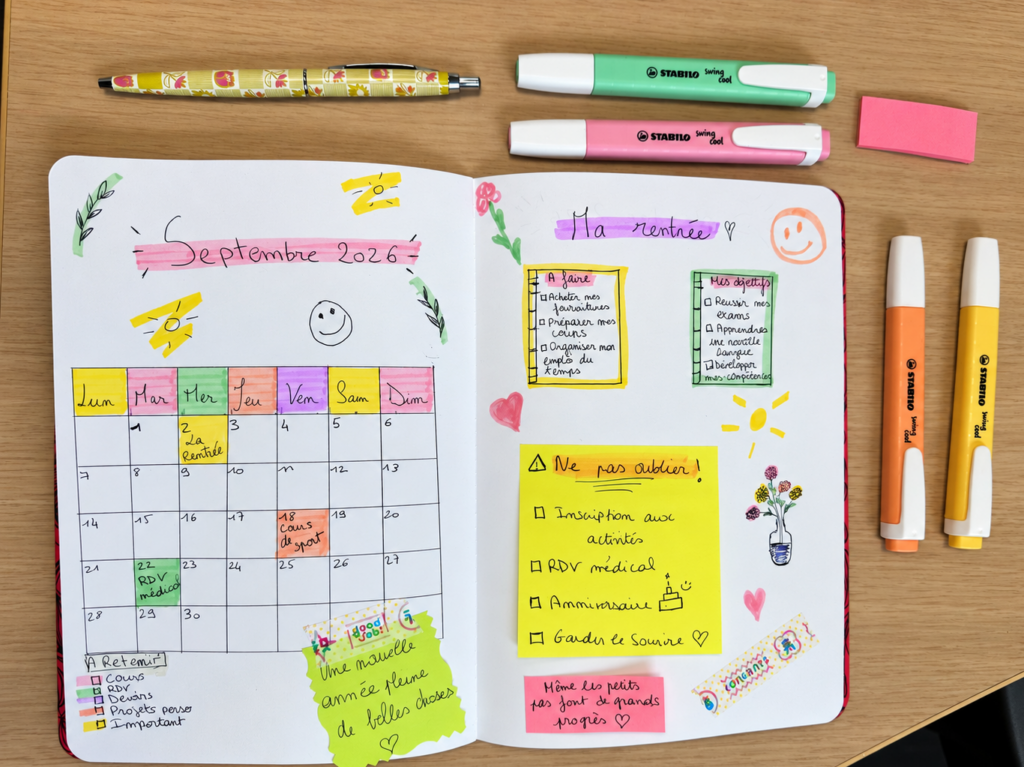 STABILO swing cool
STABILO swing cool
STABILO swing cool
STABILO swing cool
Septembre 2026
Lun Mar Mer Jeu Ven Sam Dim
1 2 3 4 5 6
La
Rentrée
7 8 9 10 11 12 13
14 15 16 17 18 19 20
Cours
de
sport
21 22 23 24 25 26 27
RDV
médical
28 29 30
A Retenir
Cours
RDV
Devoirs
Projets perso
Important
good
job!
Une nouvelle
année pleine
de belles choses
Ma rentrée
A faire
Acheter mes
fournitures
Préparer mes
cours
Organiser mon
emploi du
temps
Mes objectifs
Réussir mes
exams
Apprendre
une nouvelle
langue
Développer
mes compétences
Ne pas oublier !
Inscription aux
activités
RDV médical
Anniversaire
Garder le sourire
Même les petits
pas font de grands
progrès
CONGRATS